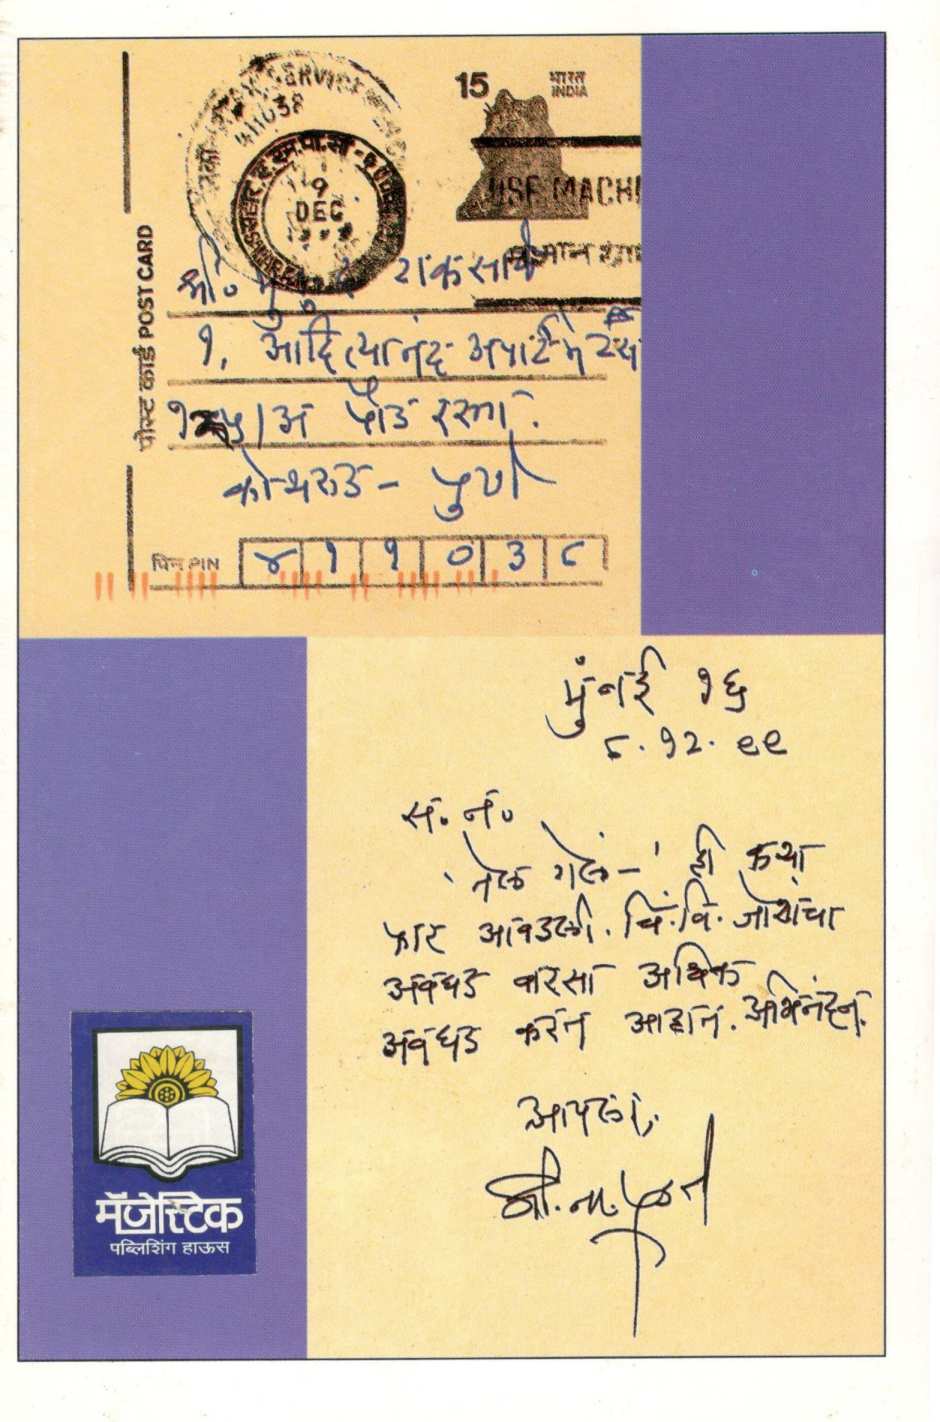 15
भारत
INDIA
411038
9
DEC
USE MACHI
पोस्ट कार्ड POST CARD
श्री. मु. द. टाकसाळे
१, आदित्यानंद अपार्टमेंटस
पौड रस्ता.
कोथरूड - पुणे
पिन PIN ४ १ १ ० ३ ८
मुंबई १६
८.१२.९९
स. न.
'तेल गेलं-' ही कथा
फार आवडली. चिं.वि. जोशांचा
अवघड वारसा अधिक
अवघड करत आहात. अभिनंदन.
आपला,
मॅजेस्टिक
पब्लिशिंग हाऊस